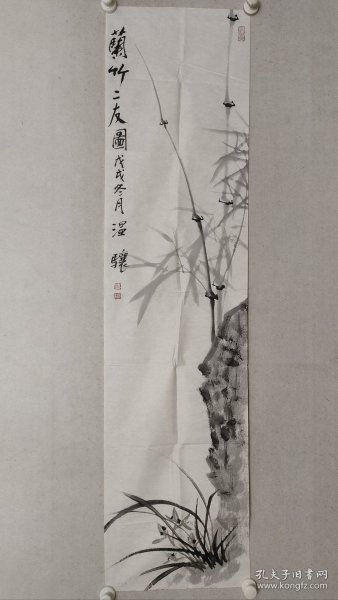 蘭竹二友圖戊戌冬月温驤
孔夫子旧书网
www.kongfz.com